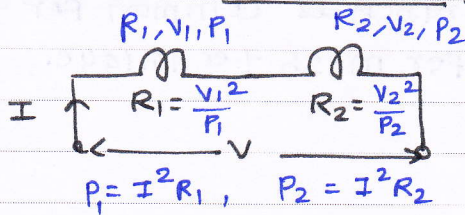 R₁, V₁, P₁ R₂, V₂, P₂
I R₁ = V₁²/P₁ R₂ = V₂²/P₂
V
P₁ = I²R₁ , P₂ = I²R₂